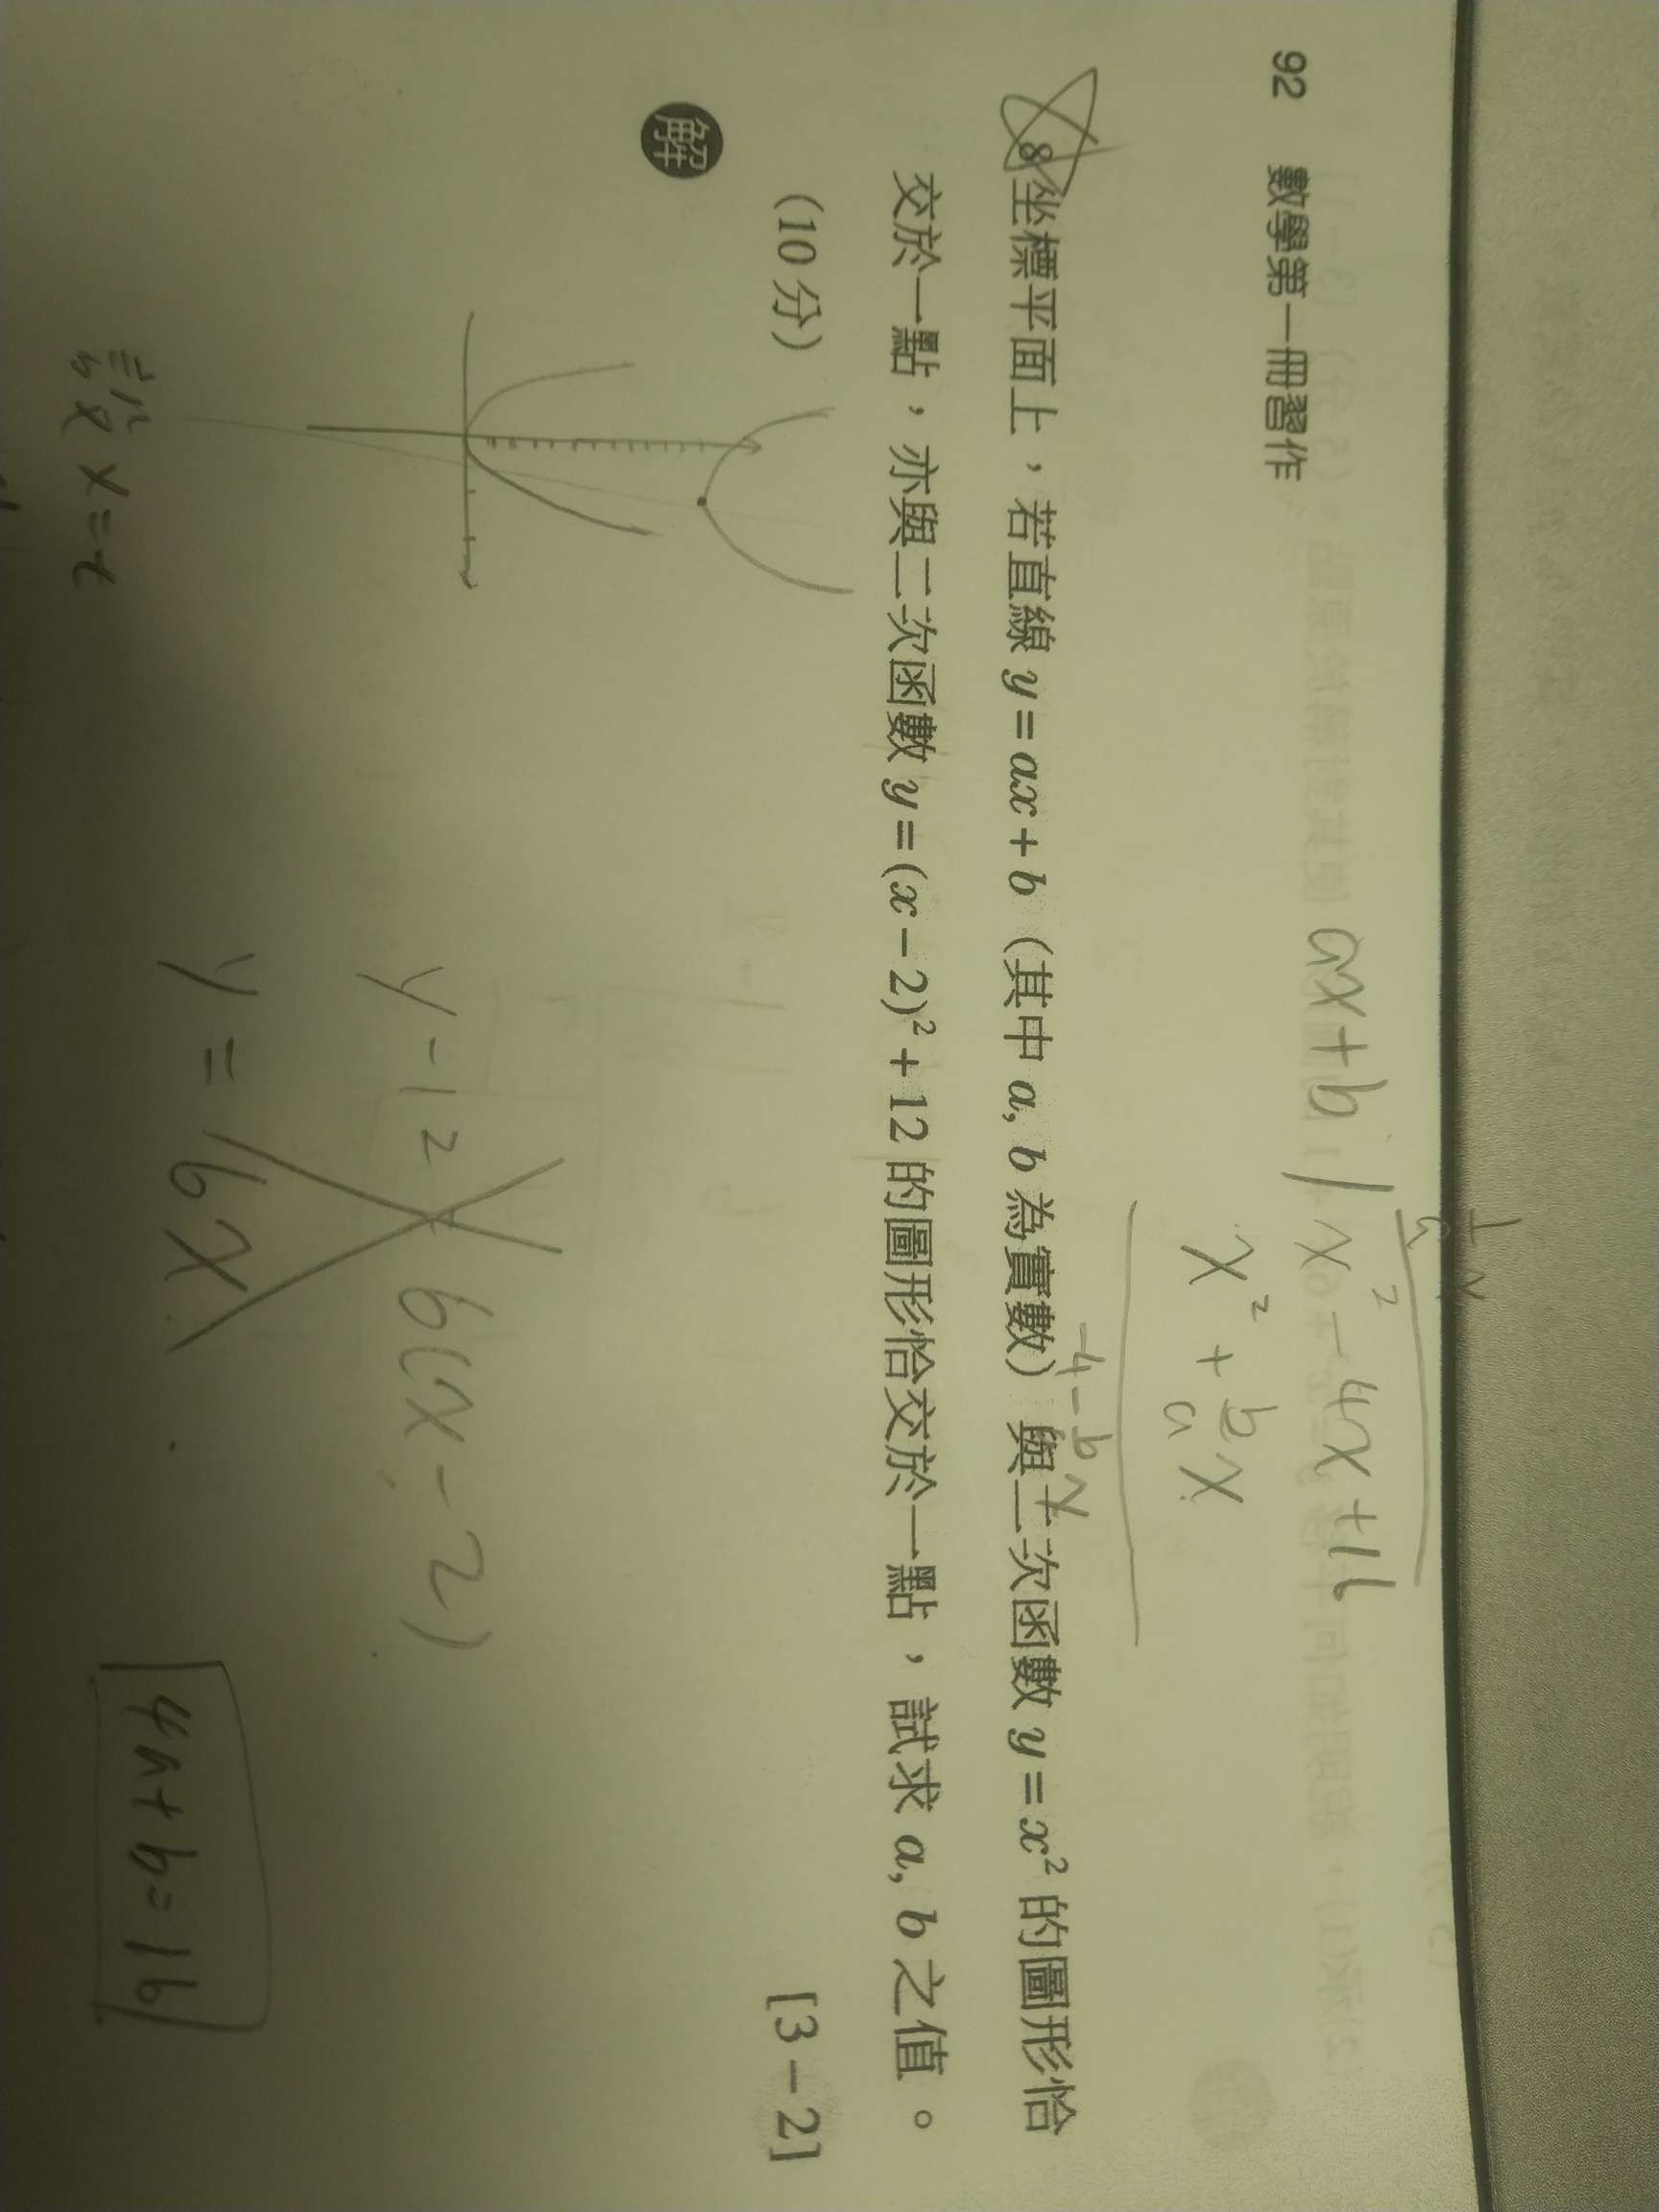 92 數學第一冊習作
ax+b
x² - 4x + 16
x² + b/a x
-4 - b/a x
8 坐標平面上，若直線 y=ax+b（其中 a, b 為實數）與二次函數 y=x² 的圖形恰
交於一點，亦與二次函數 y=(x-2)²+12 的圖形恰交於一點，試求 a, b 之值。
(10 分)
[3-2]
解
y-12
6(x-2)
y = 6x
4a+b=16